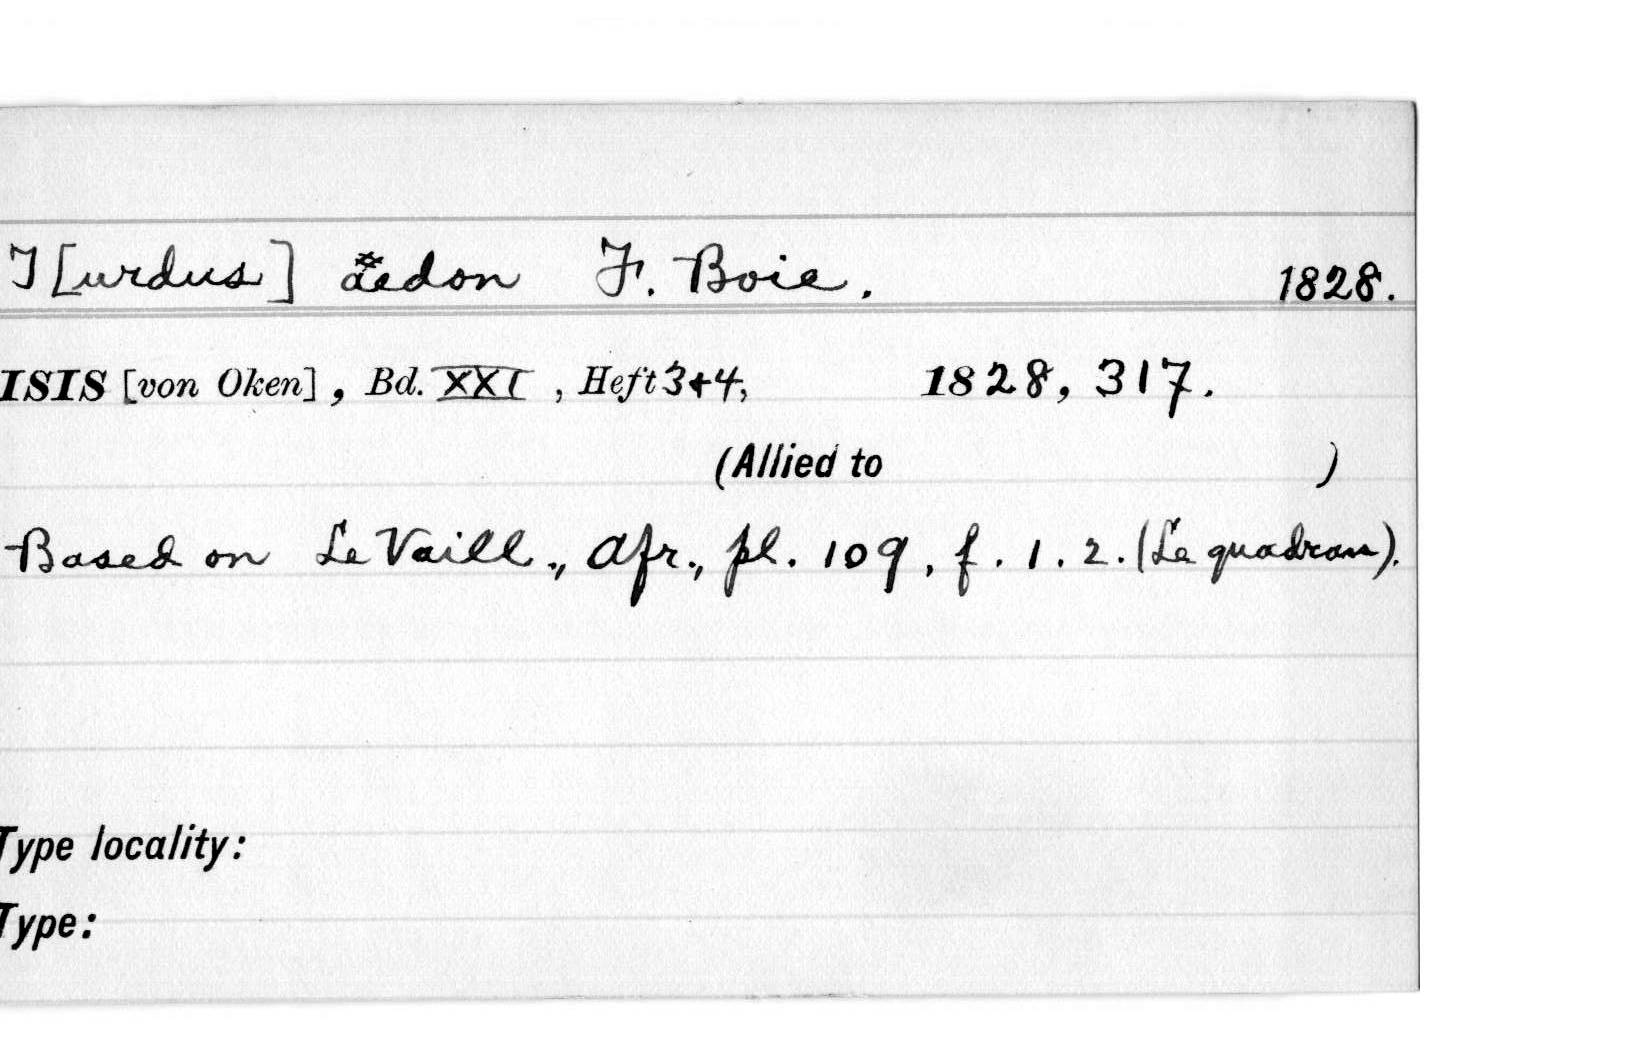 T[urdus] äedon F. Boie. 1828.
ISIS [von Oken], Bd. XXI, Heft 3+4, 1828, 317.
(Allied to )
Based on Le Vaill., Afr., pl. 109, f. 1. 2. (Le quadran).
Type locality:
Type: